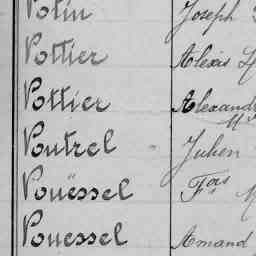 Potin Joseph
Pottier Alexis
Pottier Alexand
Poutrel Julien
Pouëssel Fçois
Pouessel Amand